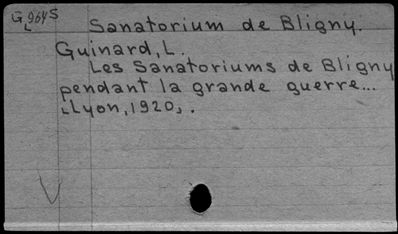 G964S Sanatorium de Bligny.
L
Guinard, L.
Les Sanatoriums de Bligny
pendant la grande guerre...
[Lyon, 1920].